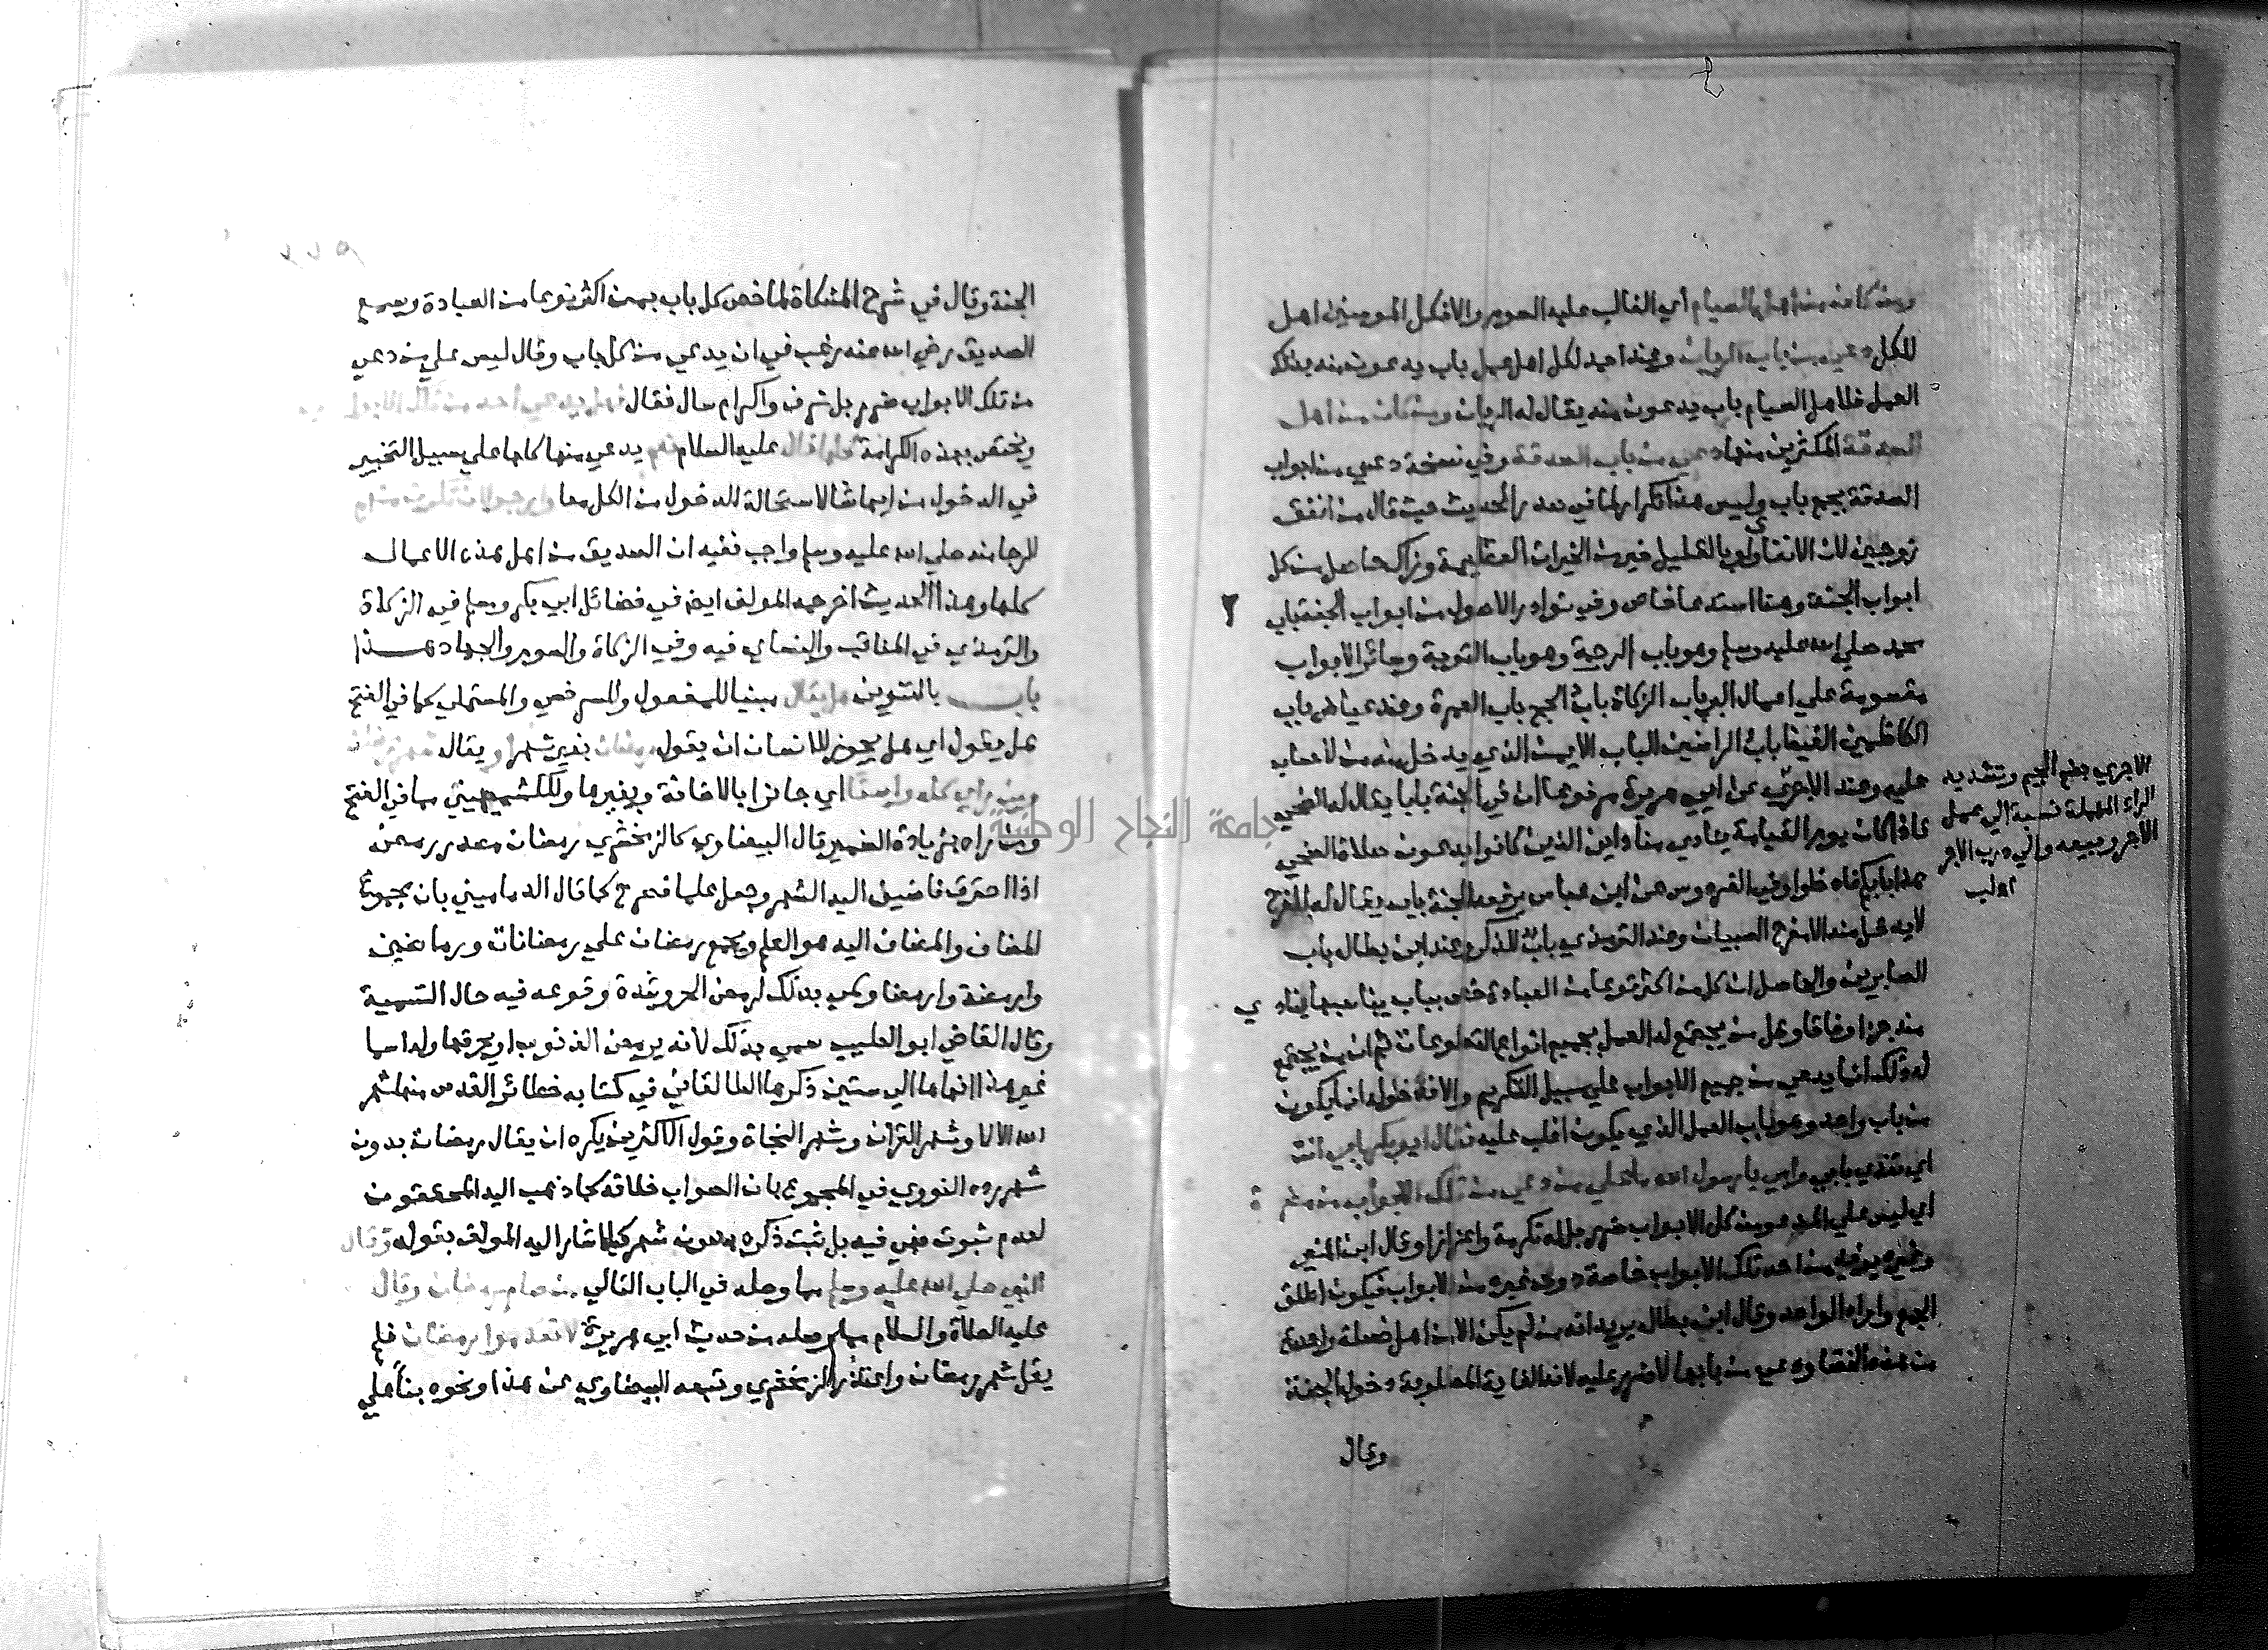 ومن كان من اهل الصيام أي الغالب عليه الصوم والا فكل المومنين اهل
للكل دعي من باب الريان وعند احمد لكل اهل عمل باب يدعون منه بذلك
العمل فلاهل الصيام باب يدعون منه يقال له الريان ومن كان من اهل
الصدقة المكثرين منها دعي من باب الصدقة وفي نسخة دعي من ابواب
الصدقة بجمع باب وليس هذا تكرارا لما في صدر الحديث حيث قال من انفق
زوجين لان الانفاق ولو بالقليل خير من الخيرات العظيمة وذاك حاصل من كل
ابواب الجنة وهذا استدعا خاص وفي نوادر الاصول من ابواب الجنة باب
محمد صلي الله عليه وسلم وهو باب الرحمة وهو باب التوبة وسائر الابواب
مقسومة علي اعمال البر باب الزكاة باب الحج باب العمرة وعند عياض باب
الكاظمين الغيظ باب الراضين الباب الايمن الذي يدخل منه من لا حساب
عليه وعند الاجري عن ابي هريرة مرفوعا ان في الجنة بابا يقال له الضحي
فاذا كان يوم القيامة ينادي مناد اين الذين كانوا يدعون صلاة الضحي
هذا بابكم فادخلوا وفي الفردوس عن ابن عباس يرفعه للجنة باب يقال له الفرح
لا يدخل منه الا مفرح الصبيان وعند الترمذي باب للذكر وعند ابن بطال باب
الصابرين والحاصل ان كل من اكثر نوعا من العبادة خص بباب يناسبها ينادي
منه جزا وفاقا وقل من يجتمع له العمل بجميع انواع التطوعات ثم ان من يجتمع
له ذلك انما يدعي من جميع الابواب علي سبيل التكريم والا فدخوله انما يكون
من باب واحد وهو باب العمل الذي يكون اغلب عليه فقال ابو بكر بابي انت
اي مفدي بابي وامي يا رسول الله ما علي من دعي من تلك الابواب من ضرورة
اي ليس علي المدعو من كل الابواب ضرر بل له تكرمة واعزازا وقال ابن المنير
وغيره يريد من احد تلك الابواب خاصة دون غيره من الابواب فيكون اطلق
الجمع واراد الواحد وقال ابن بطال يريد انه من لم يكن الا من اهل خصلة واحدة
من هذه الخصال ودعي من بابها لا ضرر عليه لان الغاية المطلوبة دخول الجنة
وقال
الاجري بضم الجيم وتشديد
الراء المهملة نسبة الي عمل
الآجر وبيعه والي درب الاجر
الجنة وقال في شرح المشكاة لما خص كل باب بمن اكثر نوعا من العبادة وسمع
الصديق رضي الله عنه رغب في ان يدعي من كل باب وقال ليس علي من دعي
من تلك الابواب ضرر بل شرف واكرام سال فقال فهل يدعي احد من تلك الابواب
ويختص بهذه الكرامة كلها قال عليه السلام نعم يدعي منها كلها علي سبيل التخيير
في الدخول من ايها شا لاستحالة الدخول من الكل معا وارجو ان تكون منهم
الرجا منه صلي الله عليه وسلم واجب ففيه ان الصديق من اهل هذه الاعمال
كلها وهذا الحديث اخرجه المولف ايضا في فضائل ابي بكر ومسلم في الزكاة
والترمذي في المناقب والنساي فيه وفي الزكاة والصوم والجهاد هذا
باب بالتنوين هل يقال مبنيا للمفعول وللسرخسي والمستملي كما في الفتح
هل يقول اي هل يجوز للانسان ان يقول رمضان بغير شهر او يقال شهر رمضان
ومن راي كله واسعا اي جائزا بالاضافة وبغيرها وللكشميهني مما في الفتح
ومن راه بزيادة الضمير قال البيضاوي كالزمخشري رمضان مصدر رمض
اذا احترق فاضيف اليه الشهر وجعل علما فصرح كما قال الدماميني بان مجموع
المضاف والمضاف اليه هو العلم ويجمع رمضان علي رمضانات ورماضين
وارمضة وارمضا وسمي بذلك لرمض الحر وشدة وقوعه فيه حال التسمية
وقال القاضي ابو الطيب سمي بذلك لانه يرمض الذنوب اي يحرقها وله اسما
غير هذا انهاها الي ستين ذكرها الطالقاني في كتابه حظائر القدس منها شهر
الله الالا وشهر القران وشهر النجاة وقول الاكثرين يكره ان يقال رمضان بدون
شهر رده النووي في المجموع بان الصواب خلافه كما ذهب اليه المحققون
لعدم ثبوت نهي فيه بل ثبت ذكره بدون شهر كما اشار اليه المولف بقوله وقال
النبي صلي الله عليه وسلم مما وصله في الباب التالي من صام رمضان وقال
عليه الصلاة والسلام مما وصله من حديث ابي هريرة لا تقدموا رمضان فلم
يقل شهر رمضان واعتذر الزمخشري وتبعه البيضاوي عن هذا ونحوه بنا علي
جامعة النجاح الوطنية